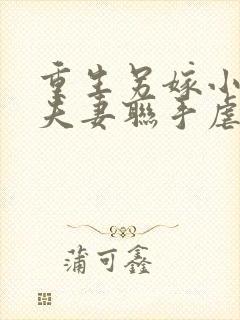 重生另嫁小
夫妻联手虐
蒲可鑫